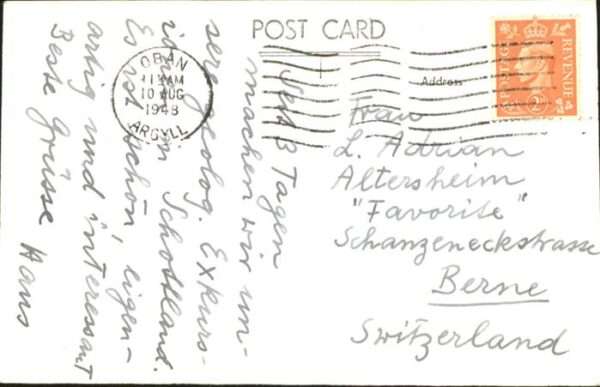 POST CARD
OBAN
11 AM
10 AUG
1948
ARGYLL
Address
REVENUE
Seit 3 Tagen
machen wir un-
sere geolog. Exkurs-
in Schottland.
Es ist schön, eigen-
artig und interessant
Beste Grüsse Hans
Frau
L. Adrian
Altersheim
"Favorite"
Schanzeneckstrasse
Berne
Switzerland